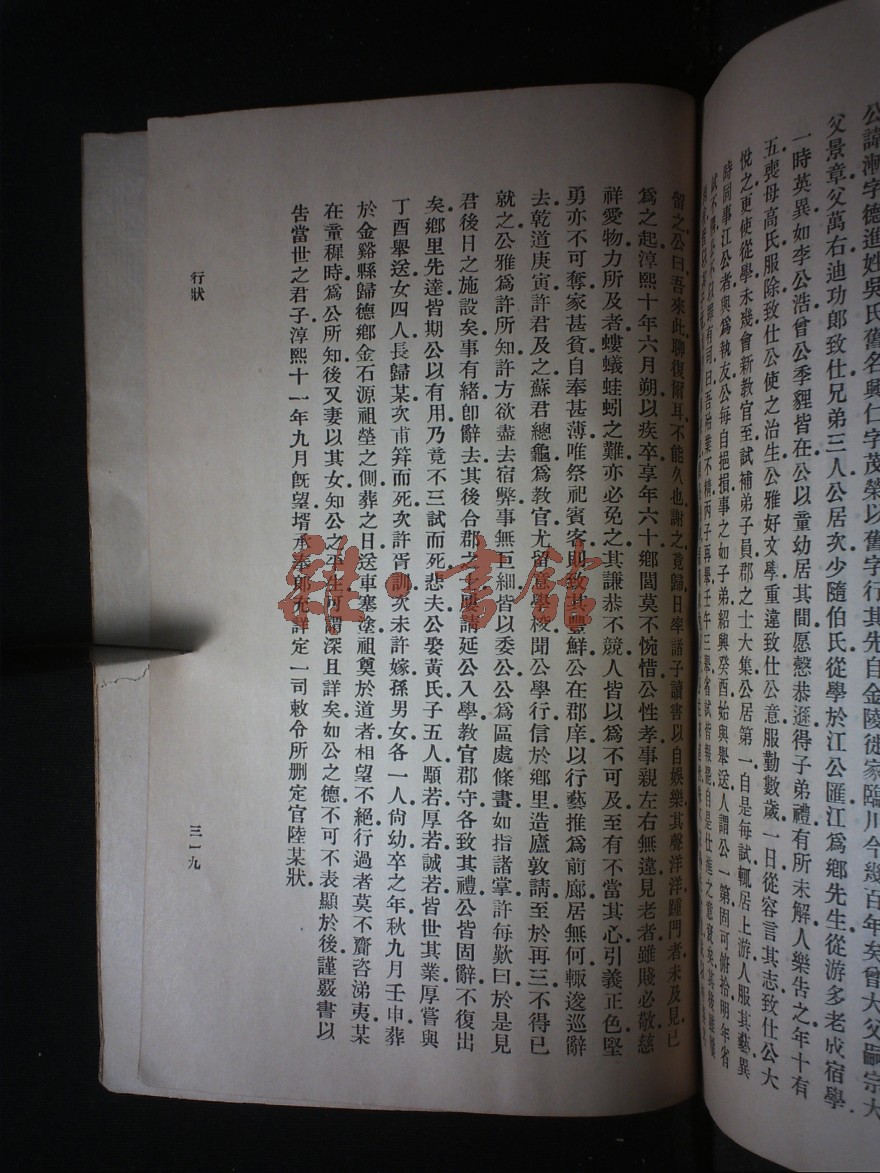 公諱漸字德進姓吳氏舊名興仁字茂榮以舊字行其先自金陵徙家臨川今幾百年矣曾大父嗣宗大
父景章父萬右迪功郎致仕兄弟三人公居次少隨伯氏從學於江公匯江為鄉先生從游多老成宿學
一時英異如李公浩曾公季貍皆在公以童幼居其間愿慤恭遜得子弟禮有所未解人樂告之年十有
五喪母高氏服除致仕公使之治生公雅好文學重遠致仕公意服勤數歲一日從容言其志致仕公大
悅之更使從學未幾會新教官至試補弟子員郡之士大集公居第一自是每試輒居上游人服其藝異
時同事江公者與為執友公每自挹損事之如子弟紹興癸酉始與舉送人謂公一第固可俯拾明年省
留之公曰吾來此聊復爾耳不能久也謝之竟歸日率諸子讀書以自娛樂其聲洋洋踵門者未及見已
為之起淳熙十年六月朔以疾卒享年六十鄉閭莫不惋惜公性孝事親左右無違見老者雖賤必敬慈
祥愛物力所及者螻蟻蛙蚓之難亦必免之其謙恭不競人皆以為不可及至有不當其心引義正色堅
勇亦不可奪家甚貧自奉甚薄唯祭祀賓客則致其豐鮮公在郡庠以行藝推為前廊居無何輙逡巡辭
去乾道庚寅許君及之蘇君總龜為教官尤留意學校聞公學行信於鄉里造廬敦請至於再三不得已
就之公雅為許所知許方欲盡去宿弊事無巨細皆以委公公為區處條畫如指諸掌許每歎曰於是見
君後日之施設矣事有緒卽辭去其後合郡之士屢請延公入學教官郡守各致其禮公皆固辭不復出
矣鄉里先達皆期公以有用乃竟不三試而死悲夫公娶黃氏子五人顒若厚若誠若皆世其業厚嘗與
丁酉舉送女四人長歸某次甫笄而死次許胥訓次未許嫁孫男女各一人尙幼卒之年秋九月壬申葬
於金谿縣歸德鄉金石源祖塋之側葬之日送車塞塗祖奠於道者相望不絕行過者莫不齎咨涕洟某
在童穉時為公所知後又妻以其女知公之平生可謂深且詳矣如公之德不可不表顯於後謹覈書以
告當世之君子淳熙十一年九月旣望壻承奉郎充詳定一司敕令所刪定官陸某狀
行狀
三一九
雜·書館